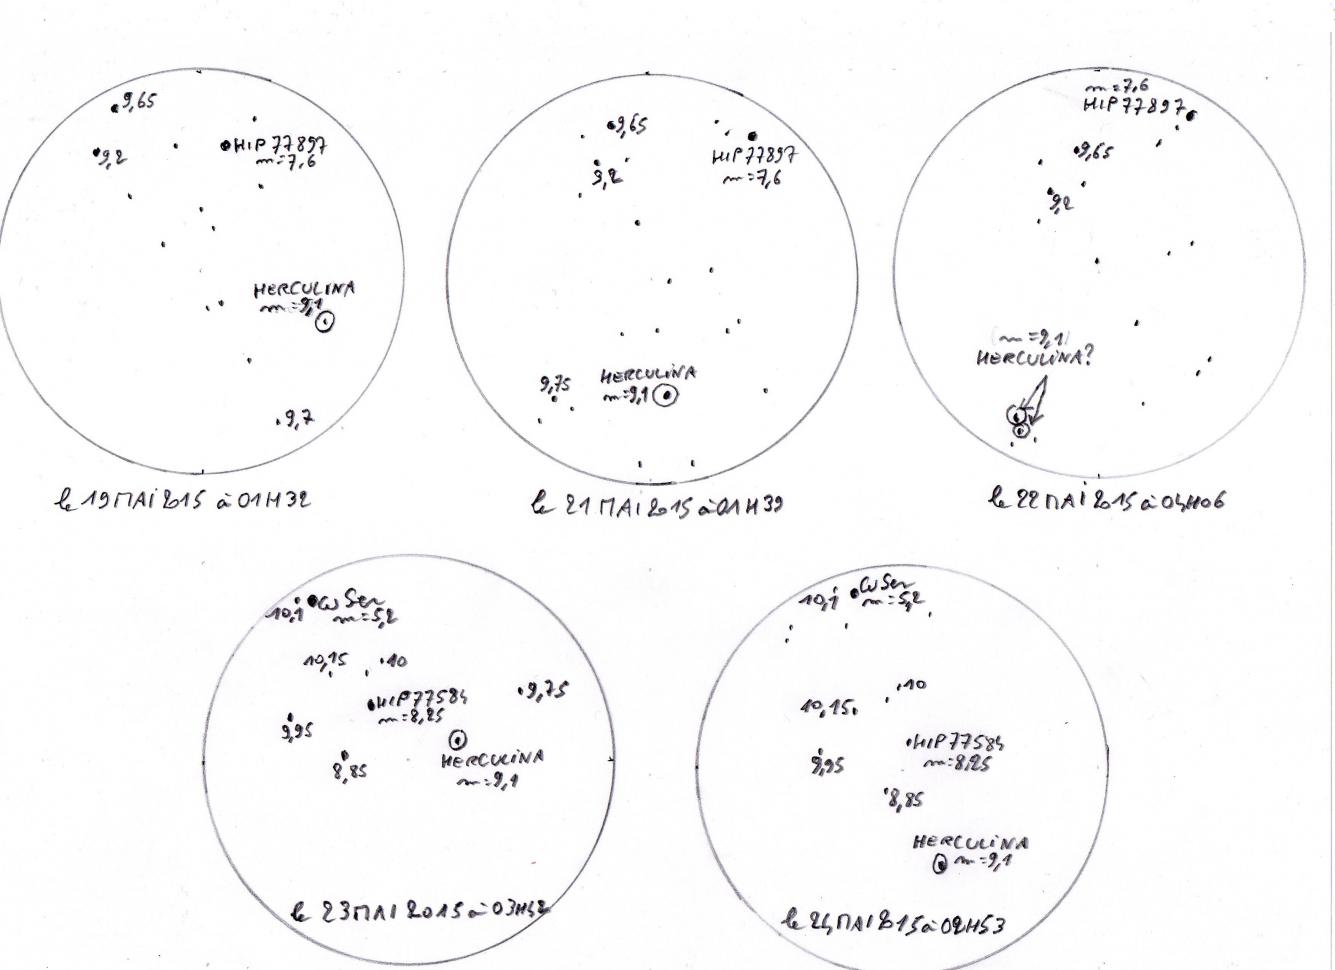 9,65
9,2
HIP 77897
m=7,6
HERCULINA
m=9,1
9,7
le 19 MAI 2015 à 01H32
9,65
9,2
HIP 77897
m=7,6
9,75
HERCULINA
m=9,1
le 21 MAI 2015 à 01H39
m=7,6
HIP 77897
9,65
9,2
(m=9,1)
HERCULINA?
le 22 MAI 2015 à 04H06
10,1
ω Ser
m=5,2
10,15
10
HIP 77584
m=8,25
9,75
9,95
8,85
HERCULINA
m=9,1
le 23 MAI 2015 à 03H42
10,1
ω Ser
m=5,2
10
10,15
HIP 77584
m=8,25
9,95
8,85
HERCULINA
m=9,1
le 24 MAI 2015 à 02H53